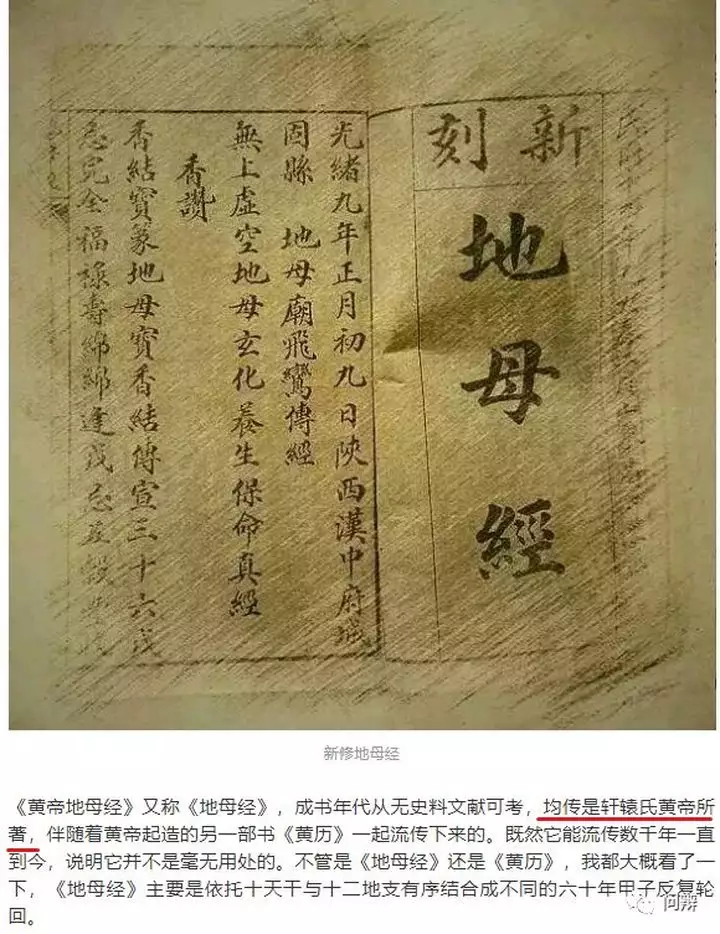 新刻
地母經
光緒九年正月初九日陝西漢中府城
固縣 地母廟飛鸞傳經
無上虛空地母玄化養生保命真經
香讚
香結寶篆地母寶香結傳宣三十六戊
忌完全福祿壽綿綿逢戊忌五穀
新修地母经
《黄帝地母经》又称《地母经》，成书年代从无史料文献可考，均传是轩辕氏黄帝所
著，伴随着黄帝起造的另一部书《黄历》一起流传下来的。既然它能流传数千年一直
到今，说明它并不是毫无用处的。不管是《地母经》还是《黄历》，我都大概看了一
下，《地母经》主要是依托十天干与十二地支有序结合成不同的六十年甲子反复轮
回。
问辩